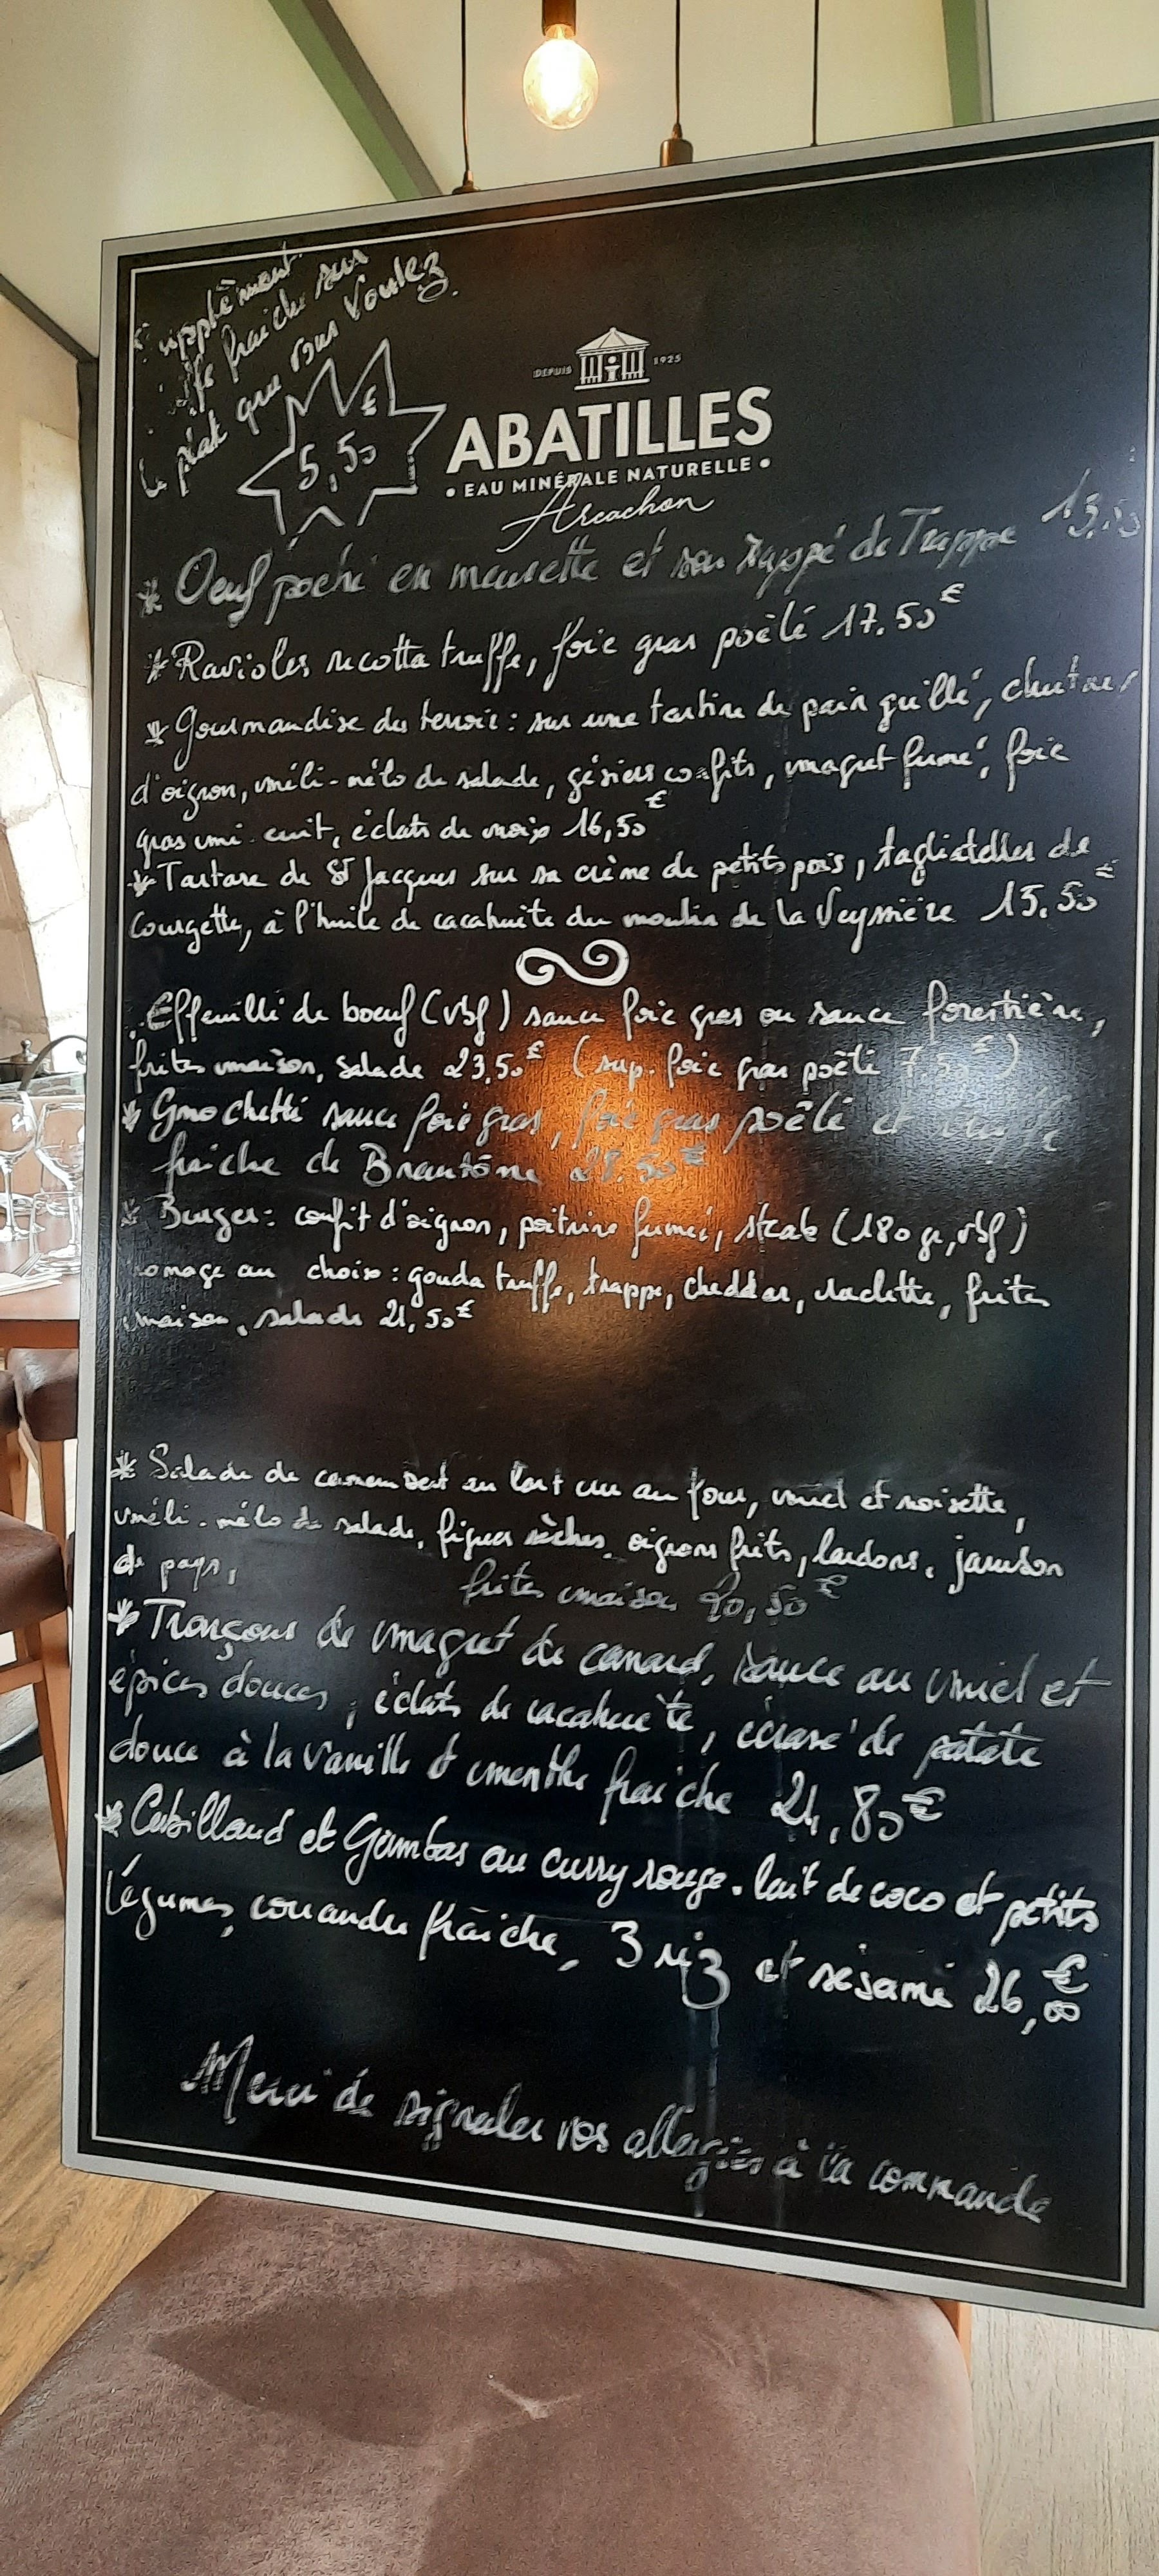 supplément
truffe fraîche sur
le plat que vous voulez
5,50 €
DEPUIS 1925
ABATILLES
• EAU MINÉRALE NATURELLE •
Arcachon
* Oeuf poché en meurette et son râppé de Trappe 13.50
* Ravioles ricotta truffe, foie gras poêlé 17.50€
* Gourmandise du terroir : sur une tartine de pain grillé, chutney
d'oignon, méli-mélo de salade, gésiers confits, magret fumé, foie
gras mi-cuit, éclats de noix 16,50€
* Tartare de St Jacques sur sa crème de petits pois, tagliatelles de
Courgette, à l'huile de cacahuète du moulin de la Veyssière 15.50€
Effeuillé de boeuf (vbf) sauce foie gras ou sauce forestière,
frites maison, salade 23,50€ (sup. foie gras poêlé 7.50€)
* Gnochetti sauce foie gras, foie gras poêlé et truffe
fraîche de Brantôme 28.50€
* Burger : confit d'oignon, poitrine fumée, steak (180 gr, vbf)
fromage au choix : gouda truffe, trappe, cheddar, raclette, frites
maison, salade 21,50€
* Salade de camembert en lait cru au four, miel et noisette,
méli-mélo de salade, figues sèches, oignons frits, lardons, jambon
de pays, frites maison 20,50€
* Tronçons de magret de canard, sauce au miel et
épices douces, éclats de cacahuète, écrasé de patate
douce à la vanille & menthe fraîche 24,80€
* Cabillaud et Gambas au curry rouge. lait de coco et petits
légumes, coriandre fraîche, 3 riz et sésame 26,00€
Merci de signaler vos allergies à la commande